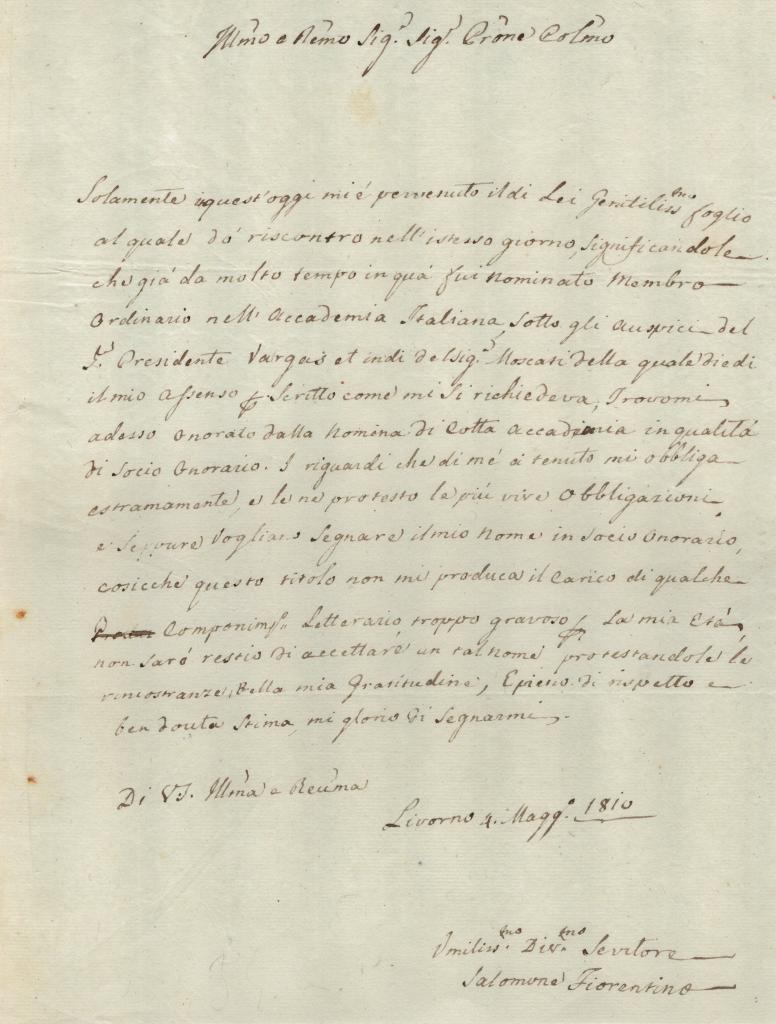 Illmo e Remo Sig.r Sig.r Prone Colmo
Solamente in quest'oggi mi é pervenuto il di Lei Gentiliss.mo foglio
al quale dó riscontro nell'istesso giorno, significandole
che giá da molto tempo in quá fui nominato Membro
Ordinario nell'Accademia Italiana, sotto gli auspici del
Presidente Vargas et indi del Sig.r Moscati della quale diedi
il mio assenso p Scritto come mi si richiedeva, Trovomi
adesso onorato dalla Nomina di Cotta accademia in qualitá
di Socio Onorario. I riguardi che di mé a tenuto mi obbliga
estramamente, e le ne protesto le piú vive obbligazioni
e Seppure Vogliano Segnare il mio Nome in Socio Onorario,
cosicche questo titolo non mi produca il Carico di qualche
Componim.to Letterario troppo gravoso p La mia Etá,
non Saró restio di accettare un tal nome protestandole le
rimostranze Della mia Gratitudine, E pieno di rispetto e
ben douta Stima, mi glorio di Segnarmi.
Di V.S. Illma e Reuma
Livorno 4. Magg.o 1810
Umiliss.mo Div.mo Sevitore
Salomone Fiorentino